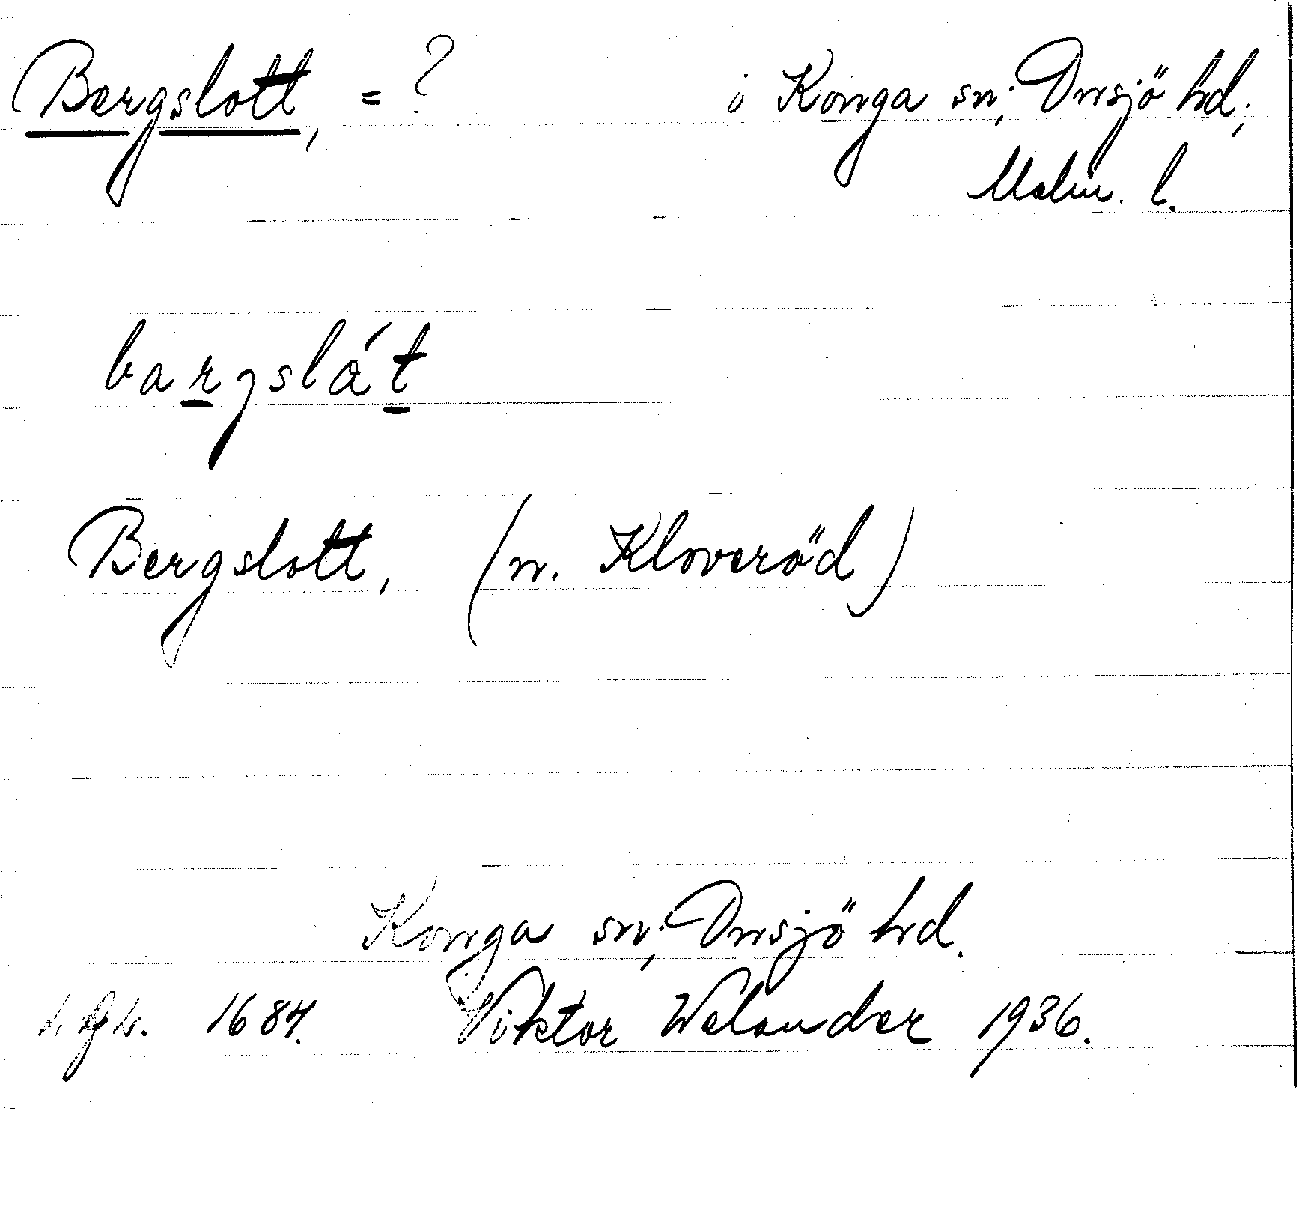 Bergslott, = ? i Konga sn; Onsjö hd;
Malm. l.
bargslát
Bergslott, (n. Kloveröd)
Konga sn; Onsjö hd.
1684. Viktor Welander 1936.